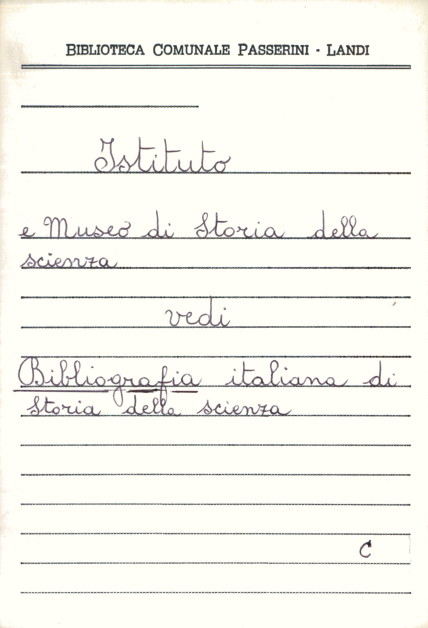 BIBLIOTECA COMUNALE PASSERINI - LANDI
Istituto
e Museo di Storia della
scienza
vedi
Bibliografia italiana di
Storia della scienza
C